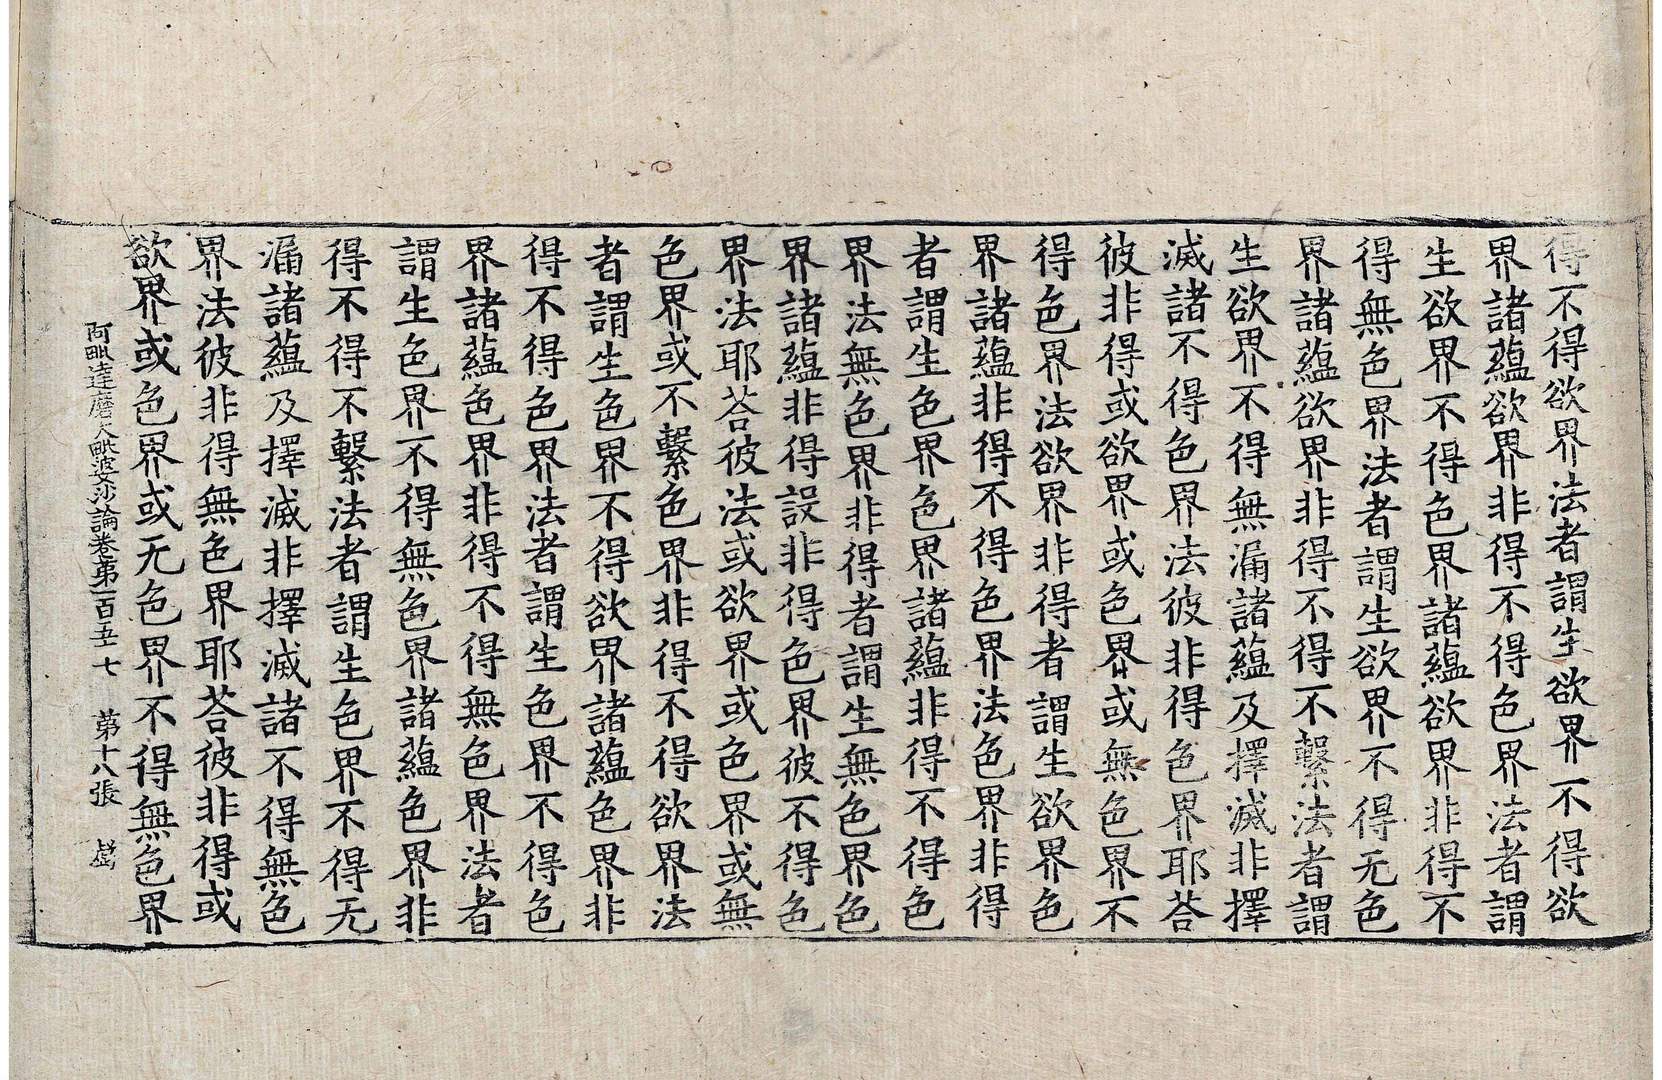 得不得欲界法者謂生欲界不得欲
界諸蘊欲界非得不得色界法者謂
生欲界不得色界諸蘊欲界非得不
得無色界法者謂生欲界不得无色
界諸蘊欲界非得不得不繫法者謂
生欲界不得無漏諸蘊及擇滅非擇
滅諸不得色界法彼非得色界耶荅
彼非得或欲界或色界或無色界不
得色界法欲界非得者謂生欲界色
界諸蘊非得不得色界法色界非得
者謂生色界色界諸蘊非得不得色
界法無色界非得者謂生無色界色
界諸蘊非得設非得色界彼不得色
界法耶荅彼法或欲界或色界或無
色界或不繫色界非得不得欲界法
者謂生色界不得欲界諸蘊色界非
得不得色界法者謂生色界不得色
界諸蘊色界非得不得無色界法者
謂生色界不得無色界諸蘊色界非
得不得不繫法者謂生色界不得无
漏諸蘊及擇滅非擇滅諸不得無色
界法彼非得無色界耶荅彼非得或
欲界或色界或无色界不得無色界
阿毗達磨大毗婆沙論卷第一百五十七 第十八張